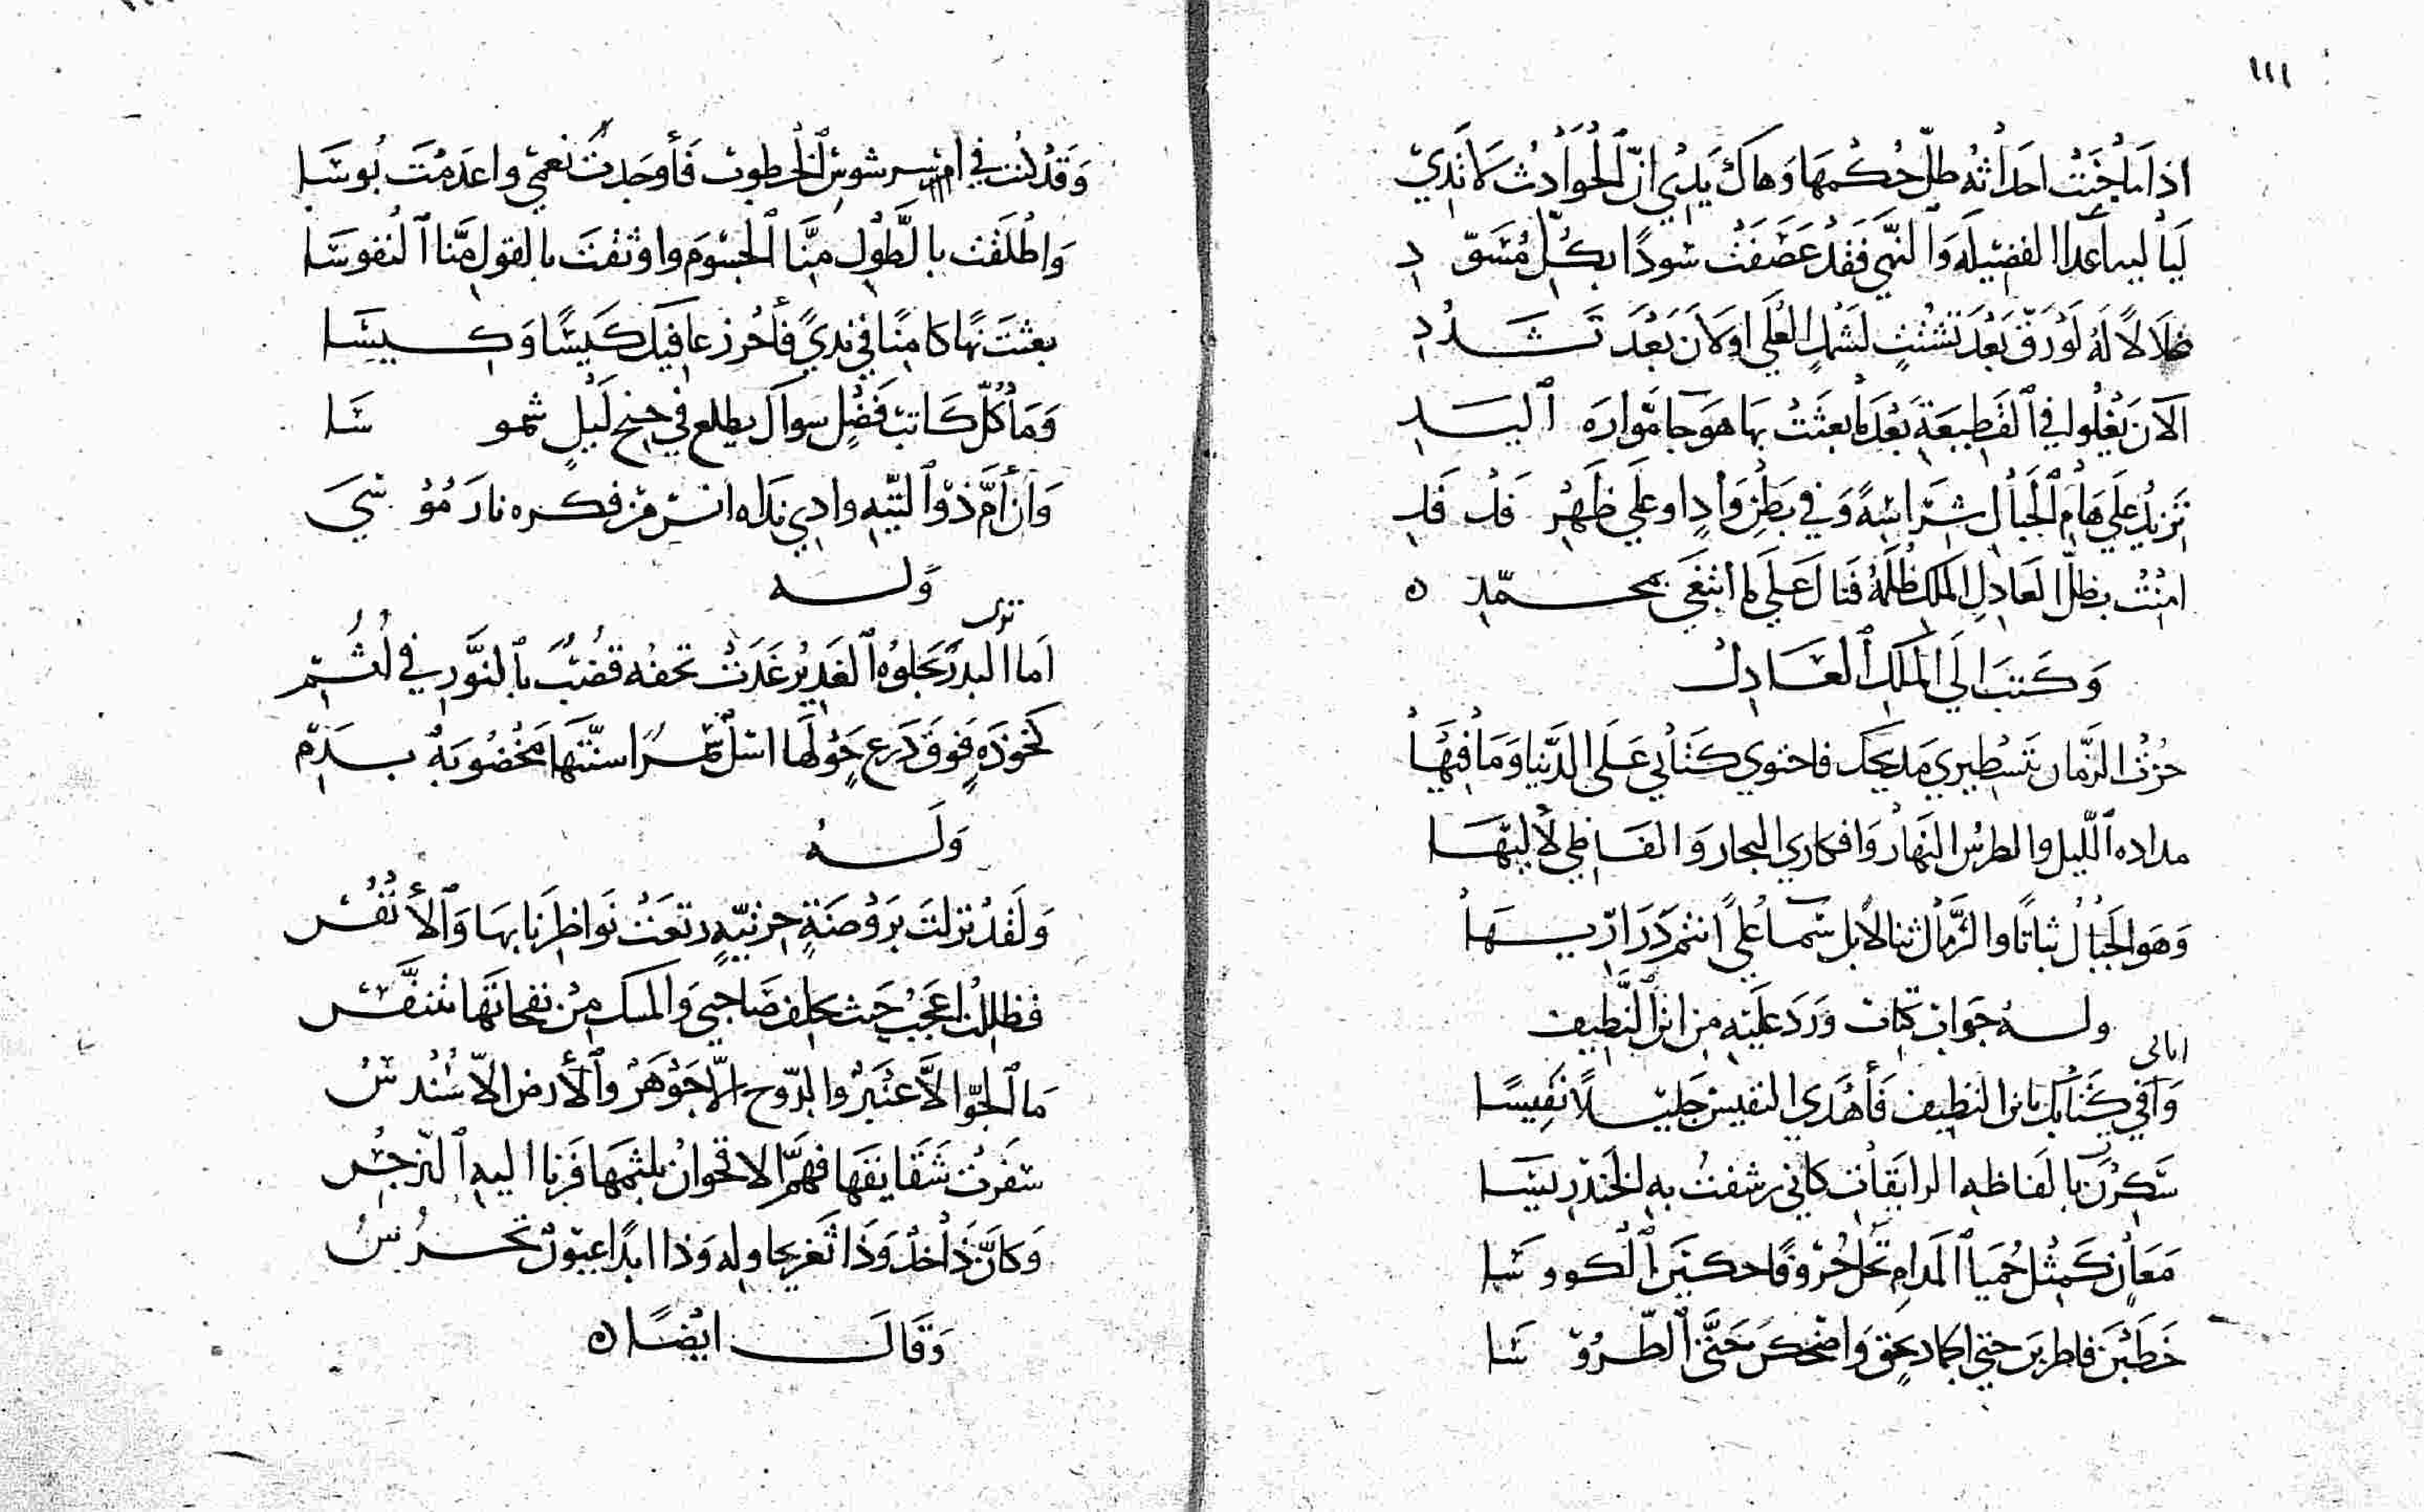 ١١١
اذا ما جنت احداثه طل حكمها وهاك يدي ان الحوادث لا تدي
ليالي اعدا الفضيلة والنهى فقد عصفت سودا بكل مسود
ضلالا له لو رق بعد تشتت لشمل العلى او لان بعد تشدد
الان يغلوا في القطيعة بعد ما بعثت بها هوجا موارة اليد
تزيد على هام الجبال شراسة وفي بطن واد او على ظهر فدفد
امنت بظل العادل الملك ظلمه فنال على لما انتغى بمحمد ه
وكتب الى الملك العادل
حزت الزمان بتسطيري مديحك فاحتوى كتابي على الدنيا وما فيها
مداده الليل والطرس النهار وافكاري البحار والفاظي لاليها
وهو الجبال ثباتا والرمال ثنا لا بل سما على انتم دراريها
وله جواب كتاب ورد عليه من ابن النطيف
اتاني
وافى كتابك يابن النطيف فأهدى النفيس جليلا نفيسا
سكرن بالفاظه الرايقات كاني رشفت به الخندريسا
معان كمثل حميا المدام تحل حروفا حكين الكووسا
خطبن فاطربن حتى الجماد بحق واضحكن حتى الطروسا
وقد كنت في اسر شوس الخطوب فأوجدت نعمى واعدمت بوسا
واطلقت بالطول منا الجسوم واوثقت بالقول منا النفوسا
بعثت نها كامنا في ندي فأحرز عافيك كيسا وكيسا
وما كل كاتب فضل سواك يطلع في جنح ليل شموسا
وان أم ذو التيه وادي نداه انس من فكره نار موسى
وله
ترى
اما البدر يجلوه الغدير غدت تحفه قضب بالنور في لثم
كخوذة فوق درع حولها اسل سمر اسنتها مخضوبة بدم
وله
ولقد نزلت بروضة حزنية رتعت نواظرنا بها والأنفس
فظللت اعجب حيث يحلف صاحبي والمسك من نفحاتها يتنفس
ما الجو الا عنبر والدوح الا جوهر والأرض الا سندس
سفرت شقايقها فهم الاقحوان بلثمها فرنا اليه النرجس
وكأن ذا خد وذا ثغر يحاوله وذا ابدا عيون تحرس
وقال ايضا ه